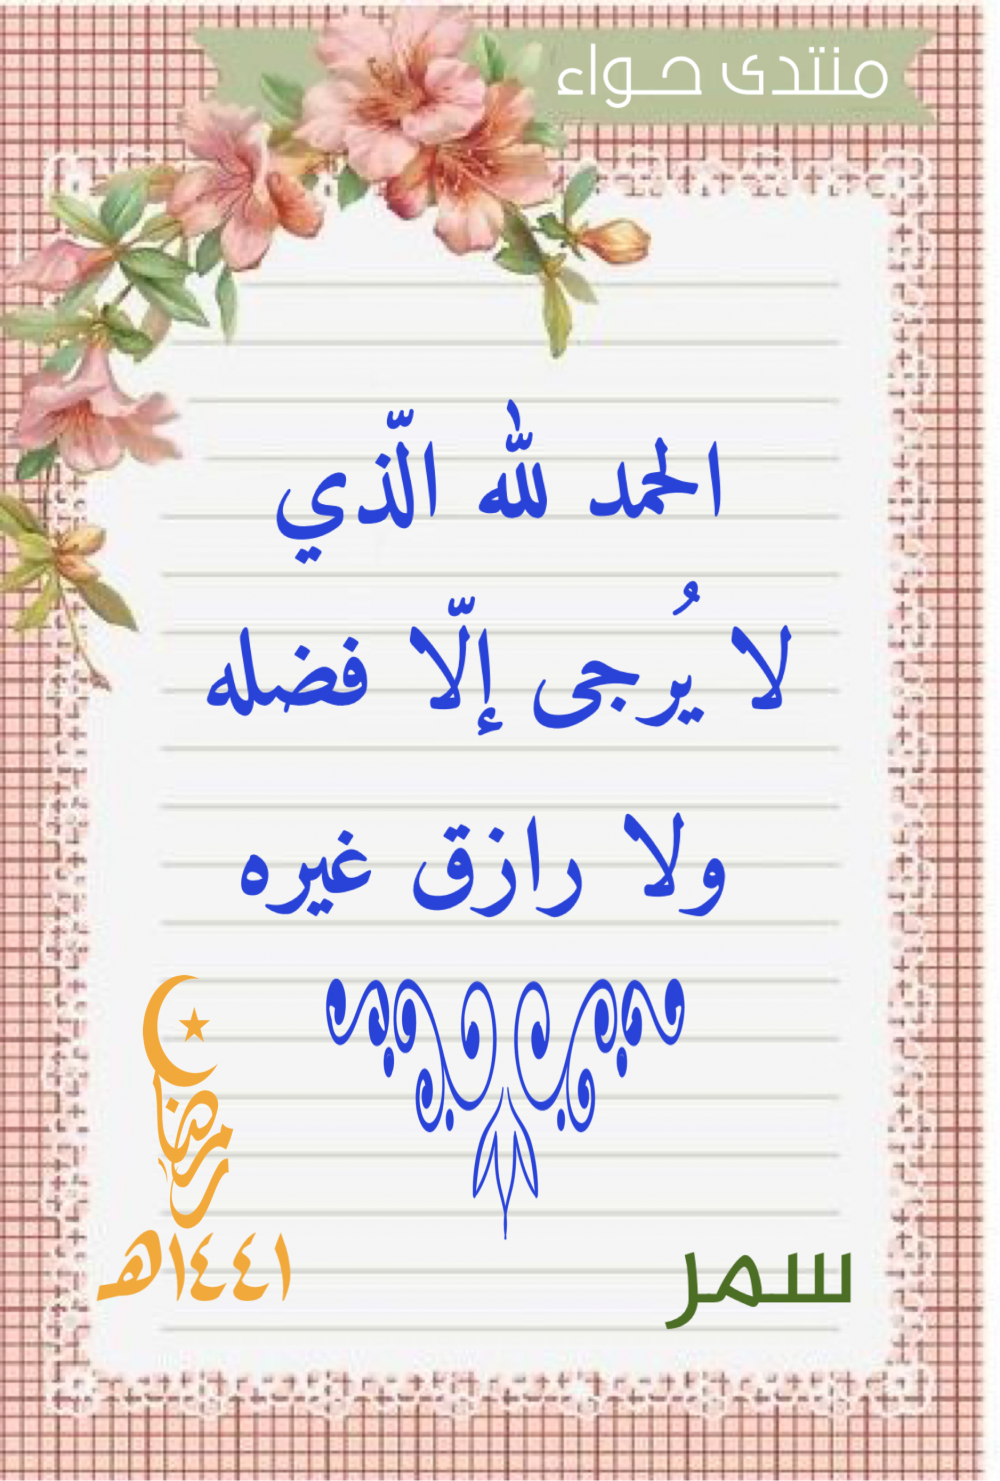 منتدى حواء
الحمد لله الّذي
لا يُرجى إلّا فضله
ولا رازق غيره
رمضان
١٤٤١هـ
سمر